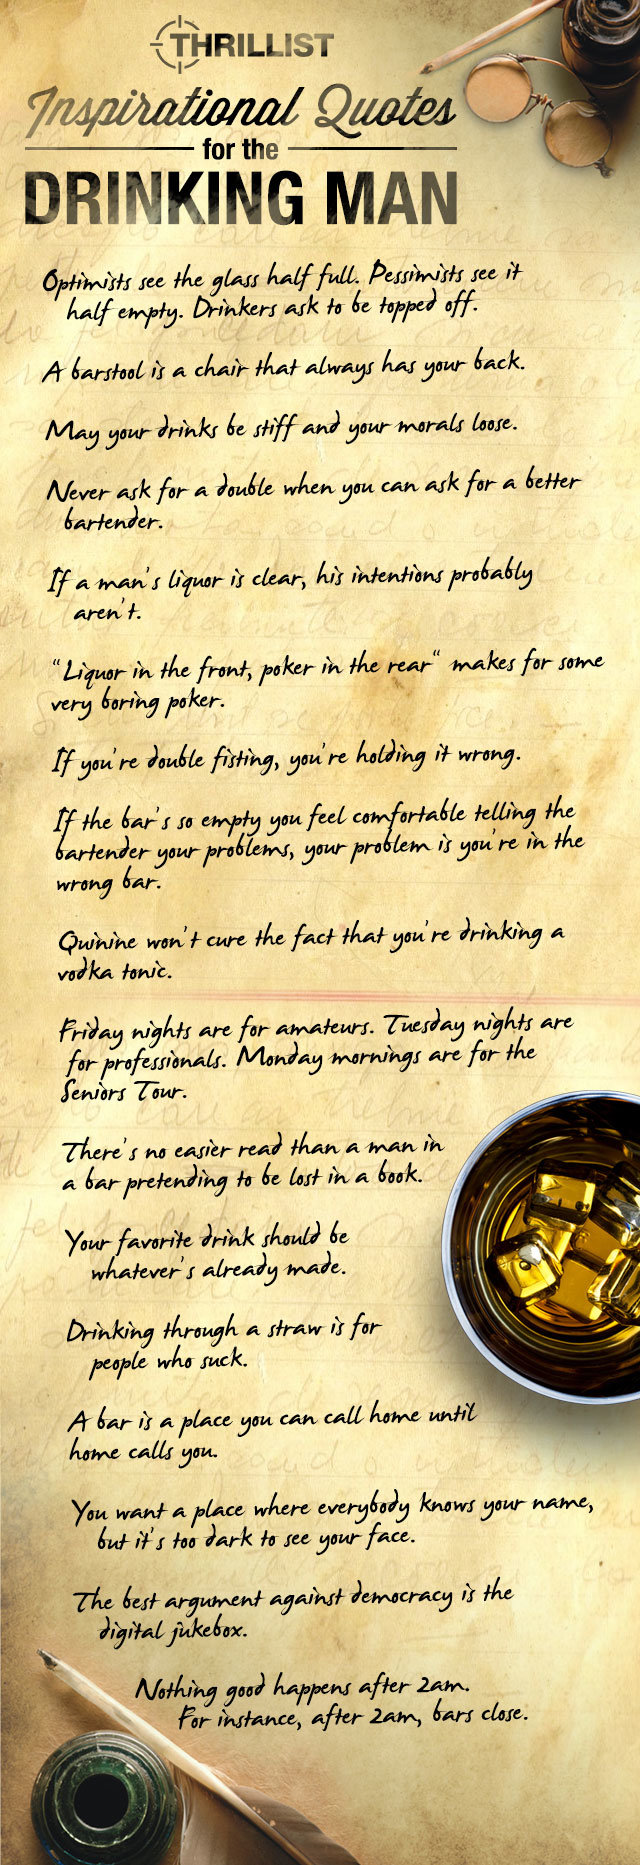 THRILLIST
Inspirational Quotes
for the
DRINKING MAN
Optimists see the glass half full. Pessimists see it
half empty. Drinkers ask to be topped off.
A barstool is a chair that always has your back.
May your drinks be stiff and your morals loose.
Never ask for a double when you can ask for a better
bartender.
If a man's liquor is clear, his intentions probably
aren't.
"Liquor in the front, poker in the rear" makes for some
very boring poker.
If you're double fisting, you're holding it wrong.
If the bar's so empty you feel comfortable telling the
bartender your problems, your problem is you're in the
wrong bar.
Quinine won't cure the fact that you're drinking a
vodka tonic.
Friday nights are for amateurs. Tuesday nights are
for professionals. Monday mornings are for the
Seniors Tour.
There's no easier read than a man in
a bar pretending to be lost in a book.
Your favorite drink should be
whatever's already made.
Drinking through a straw is for
people who suck.
A bar is a place you can call home until
home calls you.
You want a place where everybody knows your name,
but it's too dark to see your face.
The best argument against democracy is the
digital jukebox.
Nothing good happens after 2am.
For instance, after 2am, bars close.